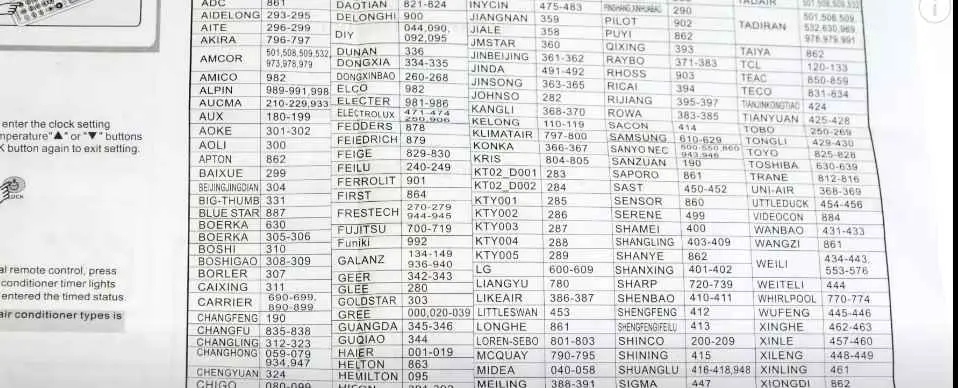 enter the clock setting
mperature"▲" or "▼" buttons
K button again to exit setting.
CLOCK
al remote control, press
conditioner timer lights
entered the timed status.
air conditioner types is
ADC 861
AIDELONG 293-295
AITE 296-299
AKIRA 796-797
AMCOR 501,508,509,532,
973,978,979
AMICO 982
ALPIN 989-991,998
AUCMA 210-229,933
AUX 180-199
AOKE 301-302
AOLI 300
APTON 862
BAIXUE 299
BEIJINGJINGDIAN 304
BIG-THUMB 331
BLUE STAR 887
BOERKA 630
BOERKA 305-306
BOSHI 310
BOSHIGAO 308-309
BORLER 307
CAIXING 311
CARRIER 690-699,
890-899
CHANGFENG 190
CHANGFU 835-838
CHANGLING 312-323
CHANGHONG 059-079
934,947
CHENGYUAN 324
CHIGO 080-099
DAOTIAN 821-824
DELONGHI 900
DIY 044,090,
092,095
DUNAN 336
DONGXIA 334-335
DONGXINBAO 260-268
ELCO 982
ELECTER 981-986
ELECTROLUX 471-474
FEDDERS 878
FEIEDRICH 879
FEIGE 829-830
FEILU 240-249
FERROLIT 901
FIRST 864
FRESTECH 270-279
944-945
FUJITSU 700-719
Funiki 992
GALANZ 134-149
936-940
GEER 342-343
GLEE 280
GOLDSTAR 303
GREE 000,020-039
GUANGDA 345-346
GUQIAO 344
HAIER 001-019
HELTON 863
HEMILTON 095
INYCIN 475-483
JIANGNAN 359
JIALE 358
JMSTAR 360
JINBEIJING 361-362
JINDA 491-492
JINSONG 363-365
JOHNSO 282
KANGLI 368-370
KELONG 110-119
KLIMATAIR 797-800
KONKA 366-367
KRIS 804-805
KT02_D001 283
KT02_D002 284
KTY001 285
KTY002 286
KTY003 287
KTY004 288
KTY005 289
LG 600-609
LIANGYU 780
LIKEAIR 386-387
LITTLESWAN 453
LONGHE 861
LOREN-SEBO 801-803
MCQUAY 790-795
MIDEA 040-058
MEILING 388-391
290
PILOT 902
PUYI 862
QIXING 393
RAYBO 371-383
RHOSS 903
RICAI 394
RIJIANG 395-397
ROWA 383-385
SACON 414
SAMSUNG 610-629
SANYO NEC 500-550,860
943,946
SANZUAN 190
SAPORO 861
SAST 450-452
SENSOR 860
SERENE 499
SHAMEI 400
SHANGLING 403-409
SHANYE 862
SHANXING 401-402
SHARP 720-739
SHENBAO 410-411
SHENGFENG 412
SHENGFENGFEILU 413
SHINCO 200-209
SHINING 415
SHUANGLU 416-418,948
SIGMA 447
TADAIR 501,508,509,532
TADIRAN 501,508,509,
532,630,969,
978,979,991
TAIYA 862
TCL 120-133
TEAC 850-859
TECO 831-834
TIANJINKONGTIAO 424
TIANYUAN 425-428
TOBO 250-269
TONGLI 429-430
TOYO 825-828
TOSHIBA 630-639
TRANE 812-816
UNI-AIR 368-369
UTTLEDUCK 454-456
VIDEOCON 884
WANBAO 431-433
WANGZI 861
WEILI 434-443,
553-576
WEITELI 444
WHIRLPOOL 770-774
WUFENG 445-446
XINGHE 462-463
XINLE 457-460
XILENG 448-449
XINLING 461
XIONGDI 862